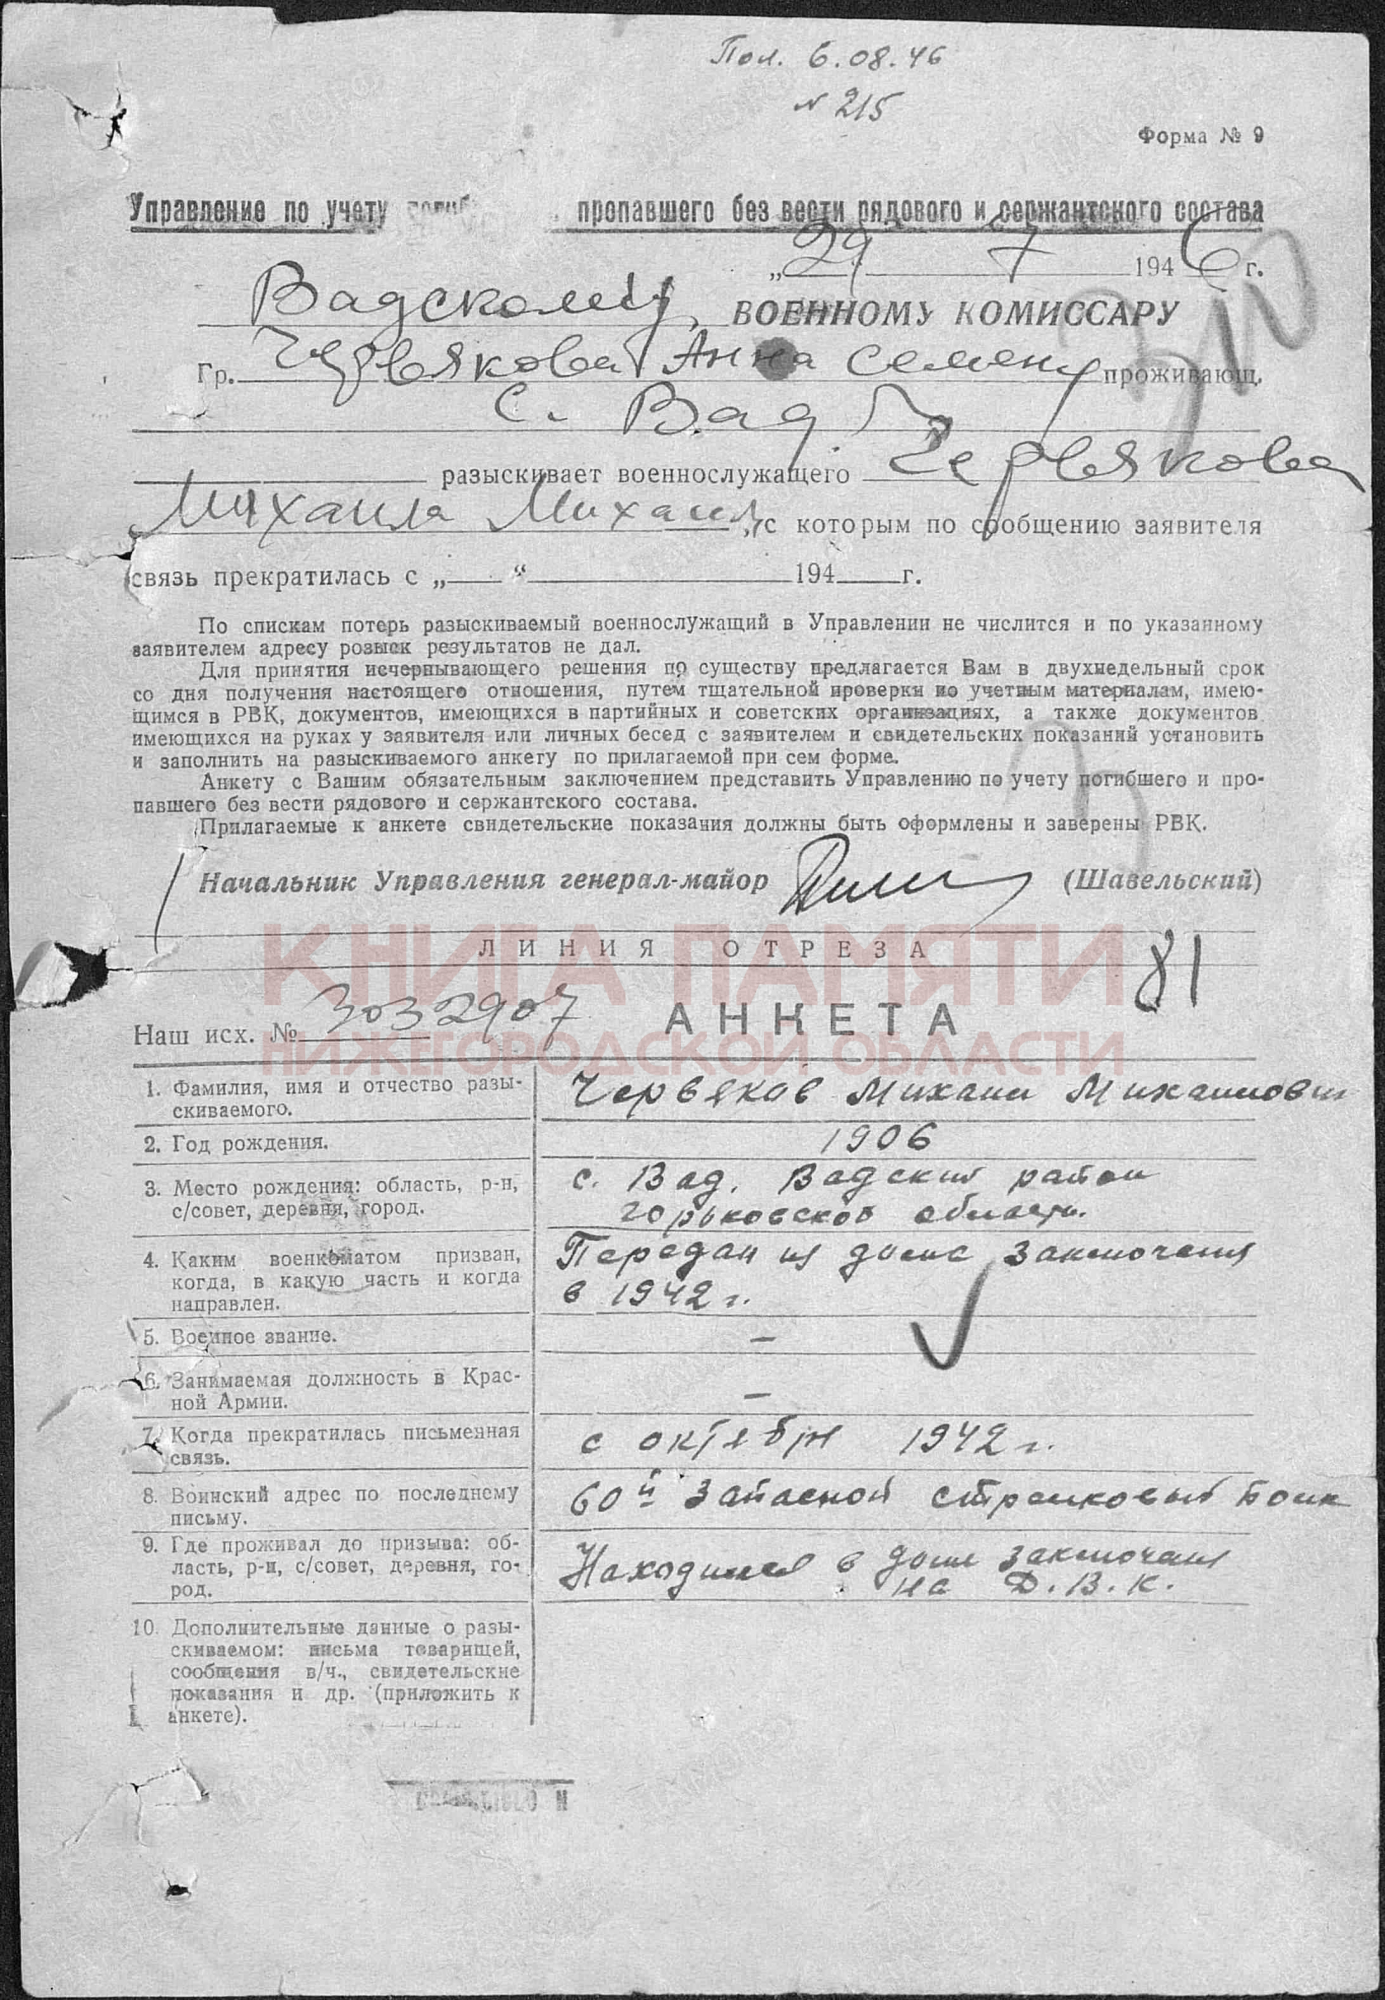 Пол. 6.08.46
№ 215
Форма № 9
Управление по учету погиб пропавшего без вести рядового и сержантского состава
„29 7 1946 г.
Вадскому ВОЕННОМУ КОМИССАРУ
Гр. Червякова Анна Семен проживающ.
с. Вад.
разыскивает военнослужащего Червякова
Михаила Михаил, с которым по сообщению заявителя
связь прекратилась с „ “ 194 г.
По спискам потерь разыскиваемый военнослужащий в Управлении не числится и по указанному
заявителем адресу розыск результатов не дал.
Для принятия исчерпывающего решения по существу предлагается Вам в двухнедельный срок
со дня получения настоящего отношения, путем тщательной проверки по учетным материалам, имею-
щимся в РВК, документов, имеющихся в партийных и советских организациях, а также документов
имеющихся на руках у заявителя или личных бесед с заявителем и свидетельских показаний установить
и заполнить на разыскиваемого анкету по прилагаемой при сем форме.
Анкету с Вашим обязательным заключением представить Управлению по учету погибшего и про-
павшего без вести рядового и сержантского состава.
Прилагаемые к анкете свидетельские показания должны быть оформлены и заверены РВК.
Начальник Управления генерал-майор (Шавельский)
КНИГА ПАМЯТИ
ЛИНИЯ ОТРЕЗА
81
Наш исх. № 3032907 АНКЕТА
НИЖЕГОРОДСКОЙ ОБЛАСТИ
1. Фамилия, имя и отчество разы-
скиваемого.
Червяков Михаил Михайлович
2. Год рождения.
1906
3. Место рождения: область, р-н,
с/совет, деревня, город.
с. Вад, Вадский район
Горьковской области.
4. Каким военкоматом призван,
когда, в какую часть и когда
направлен.
Передан из дома заключения
в 1942 г.
5. Военное звание.
—
6. Занимаемая должность в Крас-
ной Армии.
—
7. Когда прекратилась письменная
связь.
с октября 1942 г.
8. Воинский адрес по последнему
письму.
60й запасной стрелковый полк
9. Где проживал до призыва: об-
ласть, р-н, с/совет, деревня, го-
род.
Находился в доме заключения
на Д.В.К.
10. Дополнительные данные о разы-
скиваемом: письма товарищей,
сообщения в/ч., свидетельские
показания и др. (приложить к
анкете).